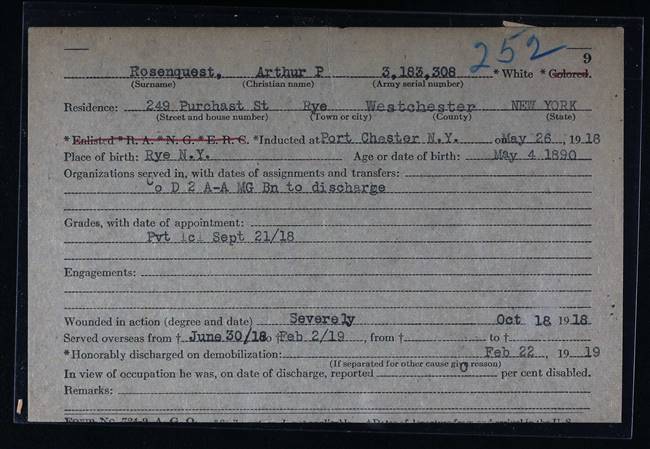 252
9
Rosenquest, Arthur P 3,183,308 * White * Colored.
(Surname) (Christian name) (Army serial number)
Residence: 249 Purchast St Rye Westchester NEW YORK
(Street and house number) (Town or city) (County) (State)
* Enlisted * R. A. * N. G. * E. R. C. * Inducted at Port Chester N.Y. on May 26 , 19 18
Place of birth: Rye N.Y. Age or date of birth: May 4 1890
Organizations served in, with dates of assignments and transfers:
Co D 2 A-A MG Bn to discharge
Grades, with date of appointment:
Pvt 1cl Sept 21/18
Engagements:
Wounded in action (degree and date) Severely Oct 18 1918
Served overseas from † June 30/18 to † Feb 2/19 , from † to †
* Honorably discharged on demobilization: Feb 22 , 19 19
(If separated for other cause give reason)
In view of occupation he was, on date of discharge, reported 0 per cent disabled.
Remarks:
Form No. 724
A. G. O.